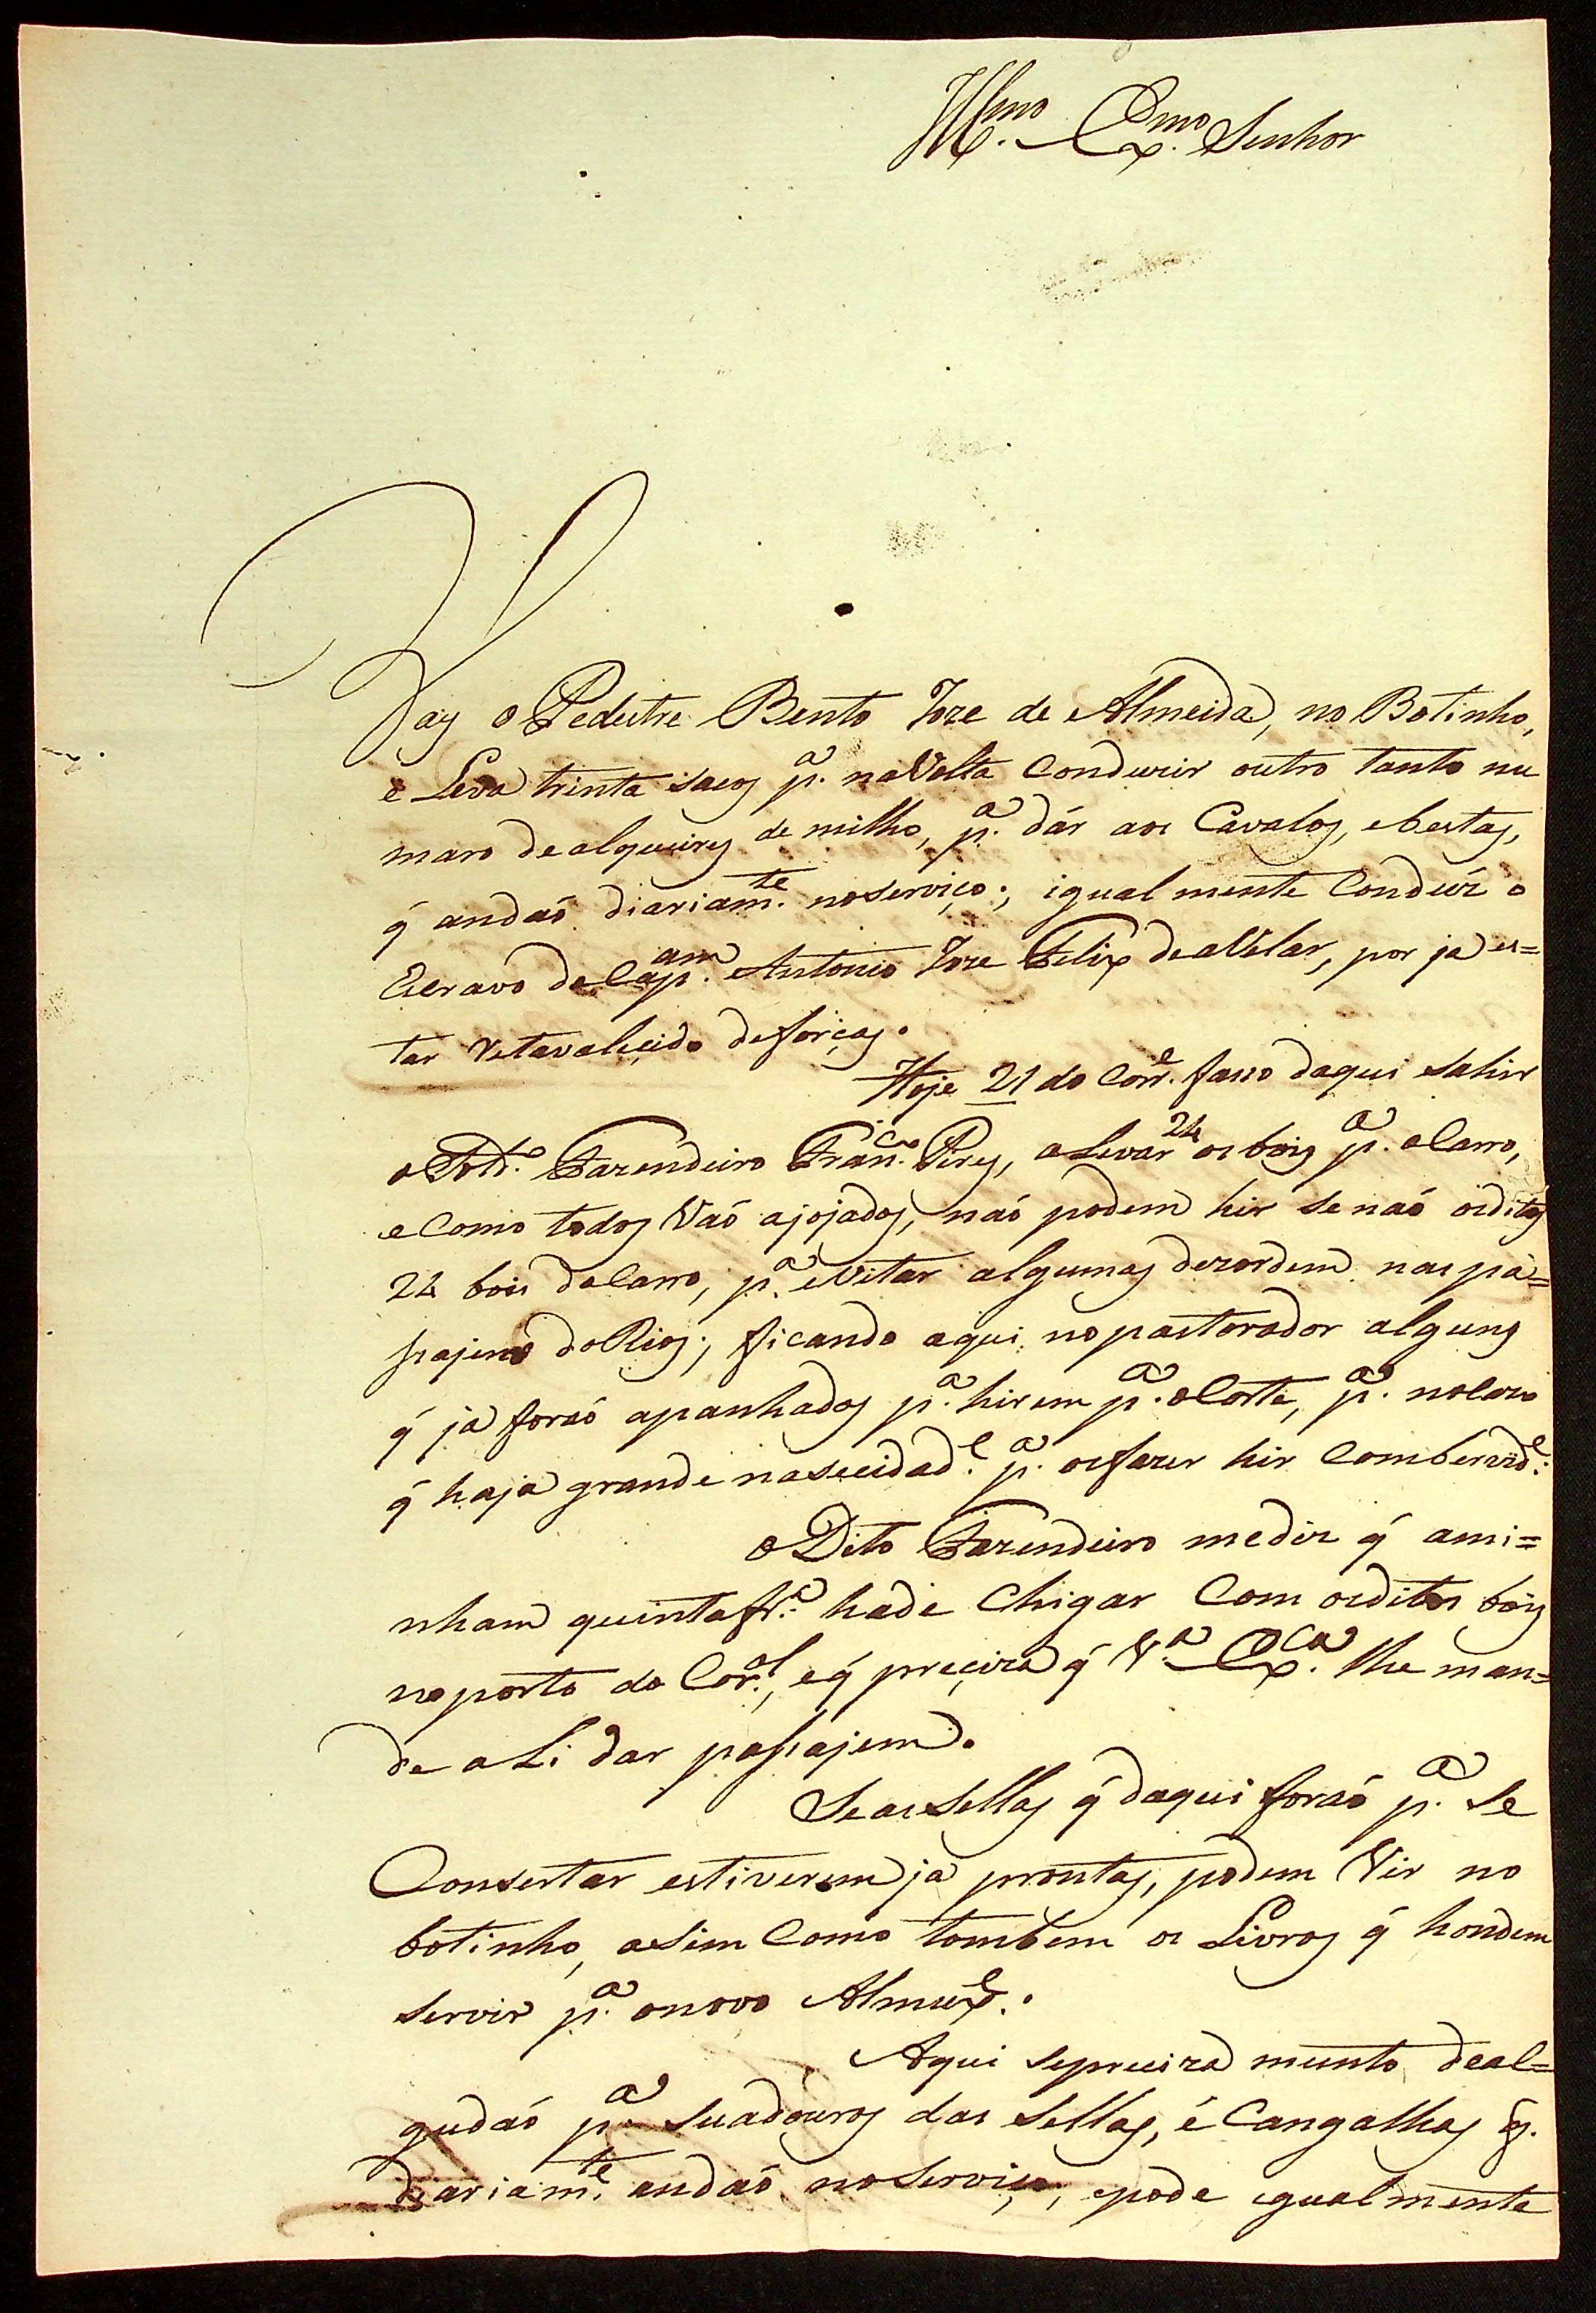 Illmo. Exmo. Senhor
Vay o Pedestre Bento Joze de Almeida, no Botinho,
e Leva trinta sacos pa. na Volta Conduzir outro tanto nu
maro de alqueires de milho, pa. dár aos Cavalos, e bestas,
q̃ andaõ diariamte. no serviço; igual mente Conduz o
Escravo do Capam. Antonio Joze Felix de aVelar, por ja es=
tar Restavalecido de forças.
Hoje 21 do Corre. faso daqui sahir
o Sold.o Fazendeiro Franco. Pires, a Levar 24 os bois pa. o Carro,
e Como todos Vaõ ajojados, naõ podem hir se naõ os ditos
24 bois do Carro, pa. eVitar algumas dezordem nas pa=
sajens do Rios; ficando aqui no pastorador alguns
q̃ ja foraõ apanhados pa. hirem pa. o Corte, pa. no cazo
q̃ haja grande nasecidade. pa. os fazer hir Com brevide.
O Dito Fazendeiro me diz q̃ ami=
nham quinta fra. hade Chigar Com os ditos bois
no porto do Corol., e q̃ preciza q̃ Va. Exca. lhe man=
de aLi dar passajem.
Se as sellas q̃ daqui foraõ pa. Se
Consertar estiverem ja prontas, podem Vir no
botinho, asim Como tombem os Livros q̃ hondem
servir pa. o novo Almuxe.
Aqui se preciza munto de al=
gudaõ pa. Suadouros das Sellas, é Cangalhas q̃.
diariamte. andaõ no serviço, e pode igual mente